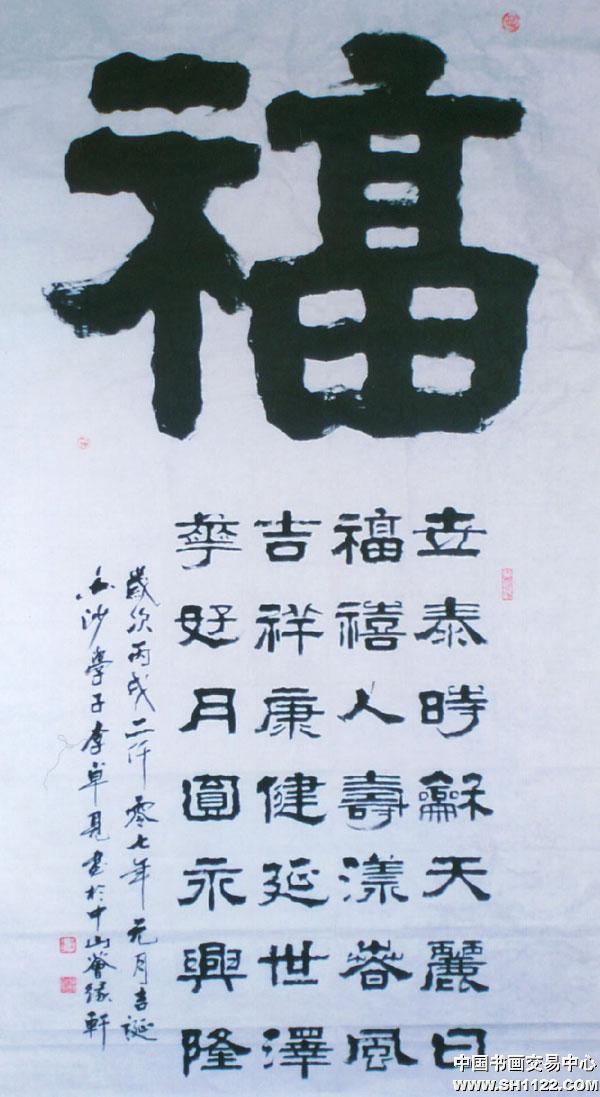 福
世泰時龢天麗日
福禧人壽漾春風
吉祥康健延世澤
華好月圓永興隆
歲次丙戌二仟零七年元月吉誕
白沙學子李卓見書於中山翰緣軒
中国书画交易中心
www.SH1122.COM